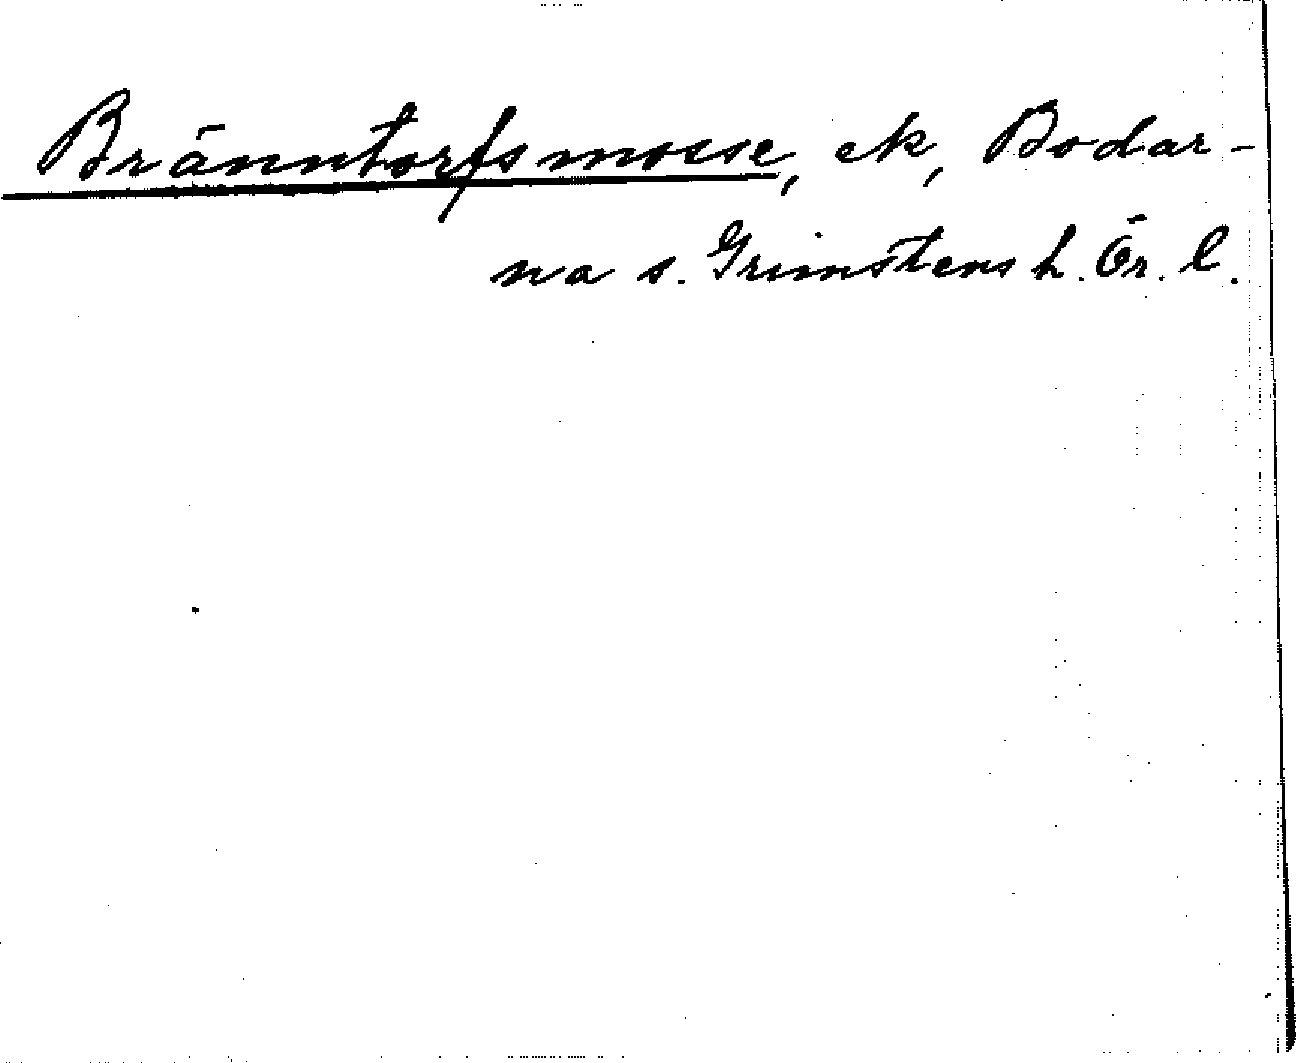 Bränntorfsmosse, ek, Bodar-
na s. Grimstens h. Ör. l.